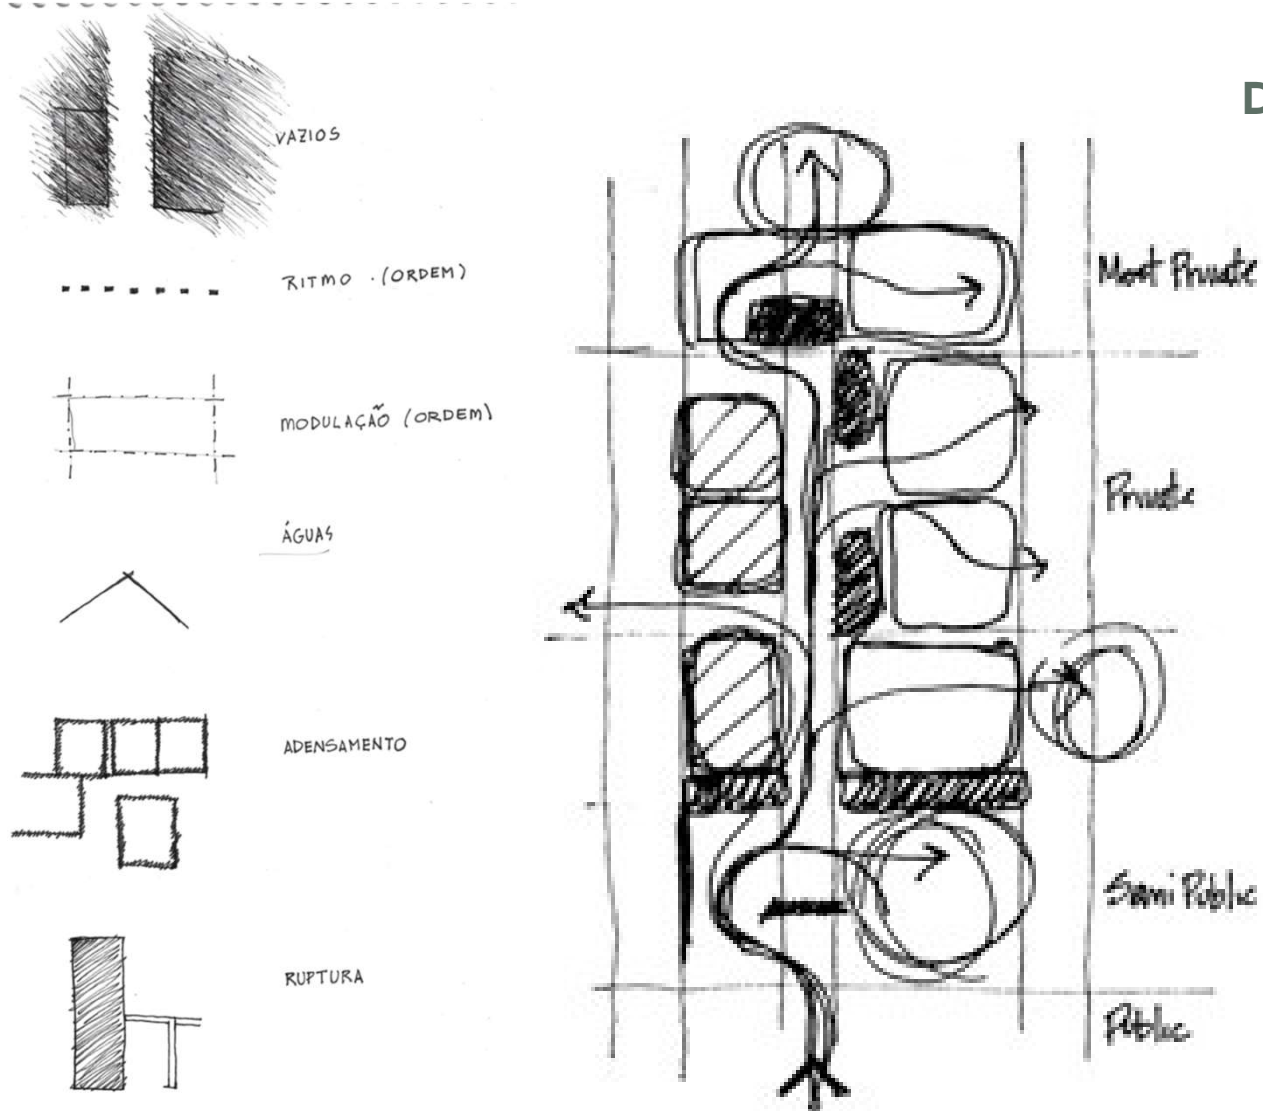 VAZIOS
RITMO . (ORDEM)
MODULAÇÃO (ORDEM)
ÁGUAS
ADENSAMENTO
RUPTURA
D
Most Private
Private
Semi Public
Public